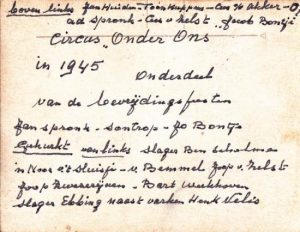 boven links Jan Huiden - Toon Kuppens - Cees v/d Akker - O
ad Spronk - Cees v. Helst - Jacob Bontje
Circus "Onder Ons"
in 1945
Onderdeel
van de bevrijdingsfeesten
Jan Spronk - Sontrop - Jo Bontje
Gehurkt van links slager Ben Scholman
in Koor v. Bemmel Joop v. Helst
Joop Zwezerijnen - Bart Werkhoven
slager Ebbing naast varken Henk Velis